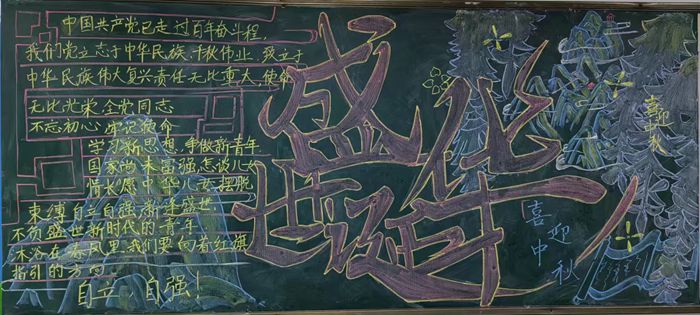 中国共产党已走过百年奋斗程,
我们党立志于中华民族千秋伟业,致立于
中华民族伟大复兴责任无比重大,使命
无比光荣全党同志
不忘初心牢记使命
学习新思想,争做新青年
国家尚未富强,怎谈儿女
情长愿中华儿女摆脱
束缚自立自强,新逢盛世
不负盛世新时代的青年
沐浴在春风里我们要向着红旗
指引的方向
自立,自强!
盛世华诞
喜迎
中秋
喜迎
中秋